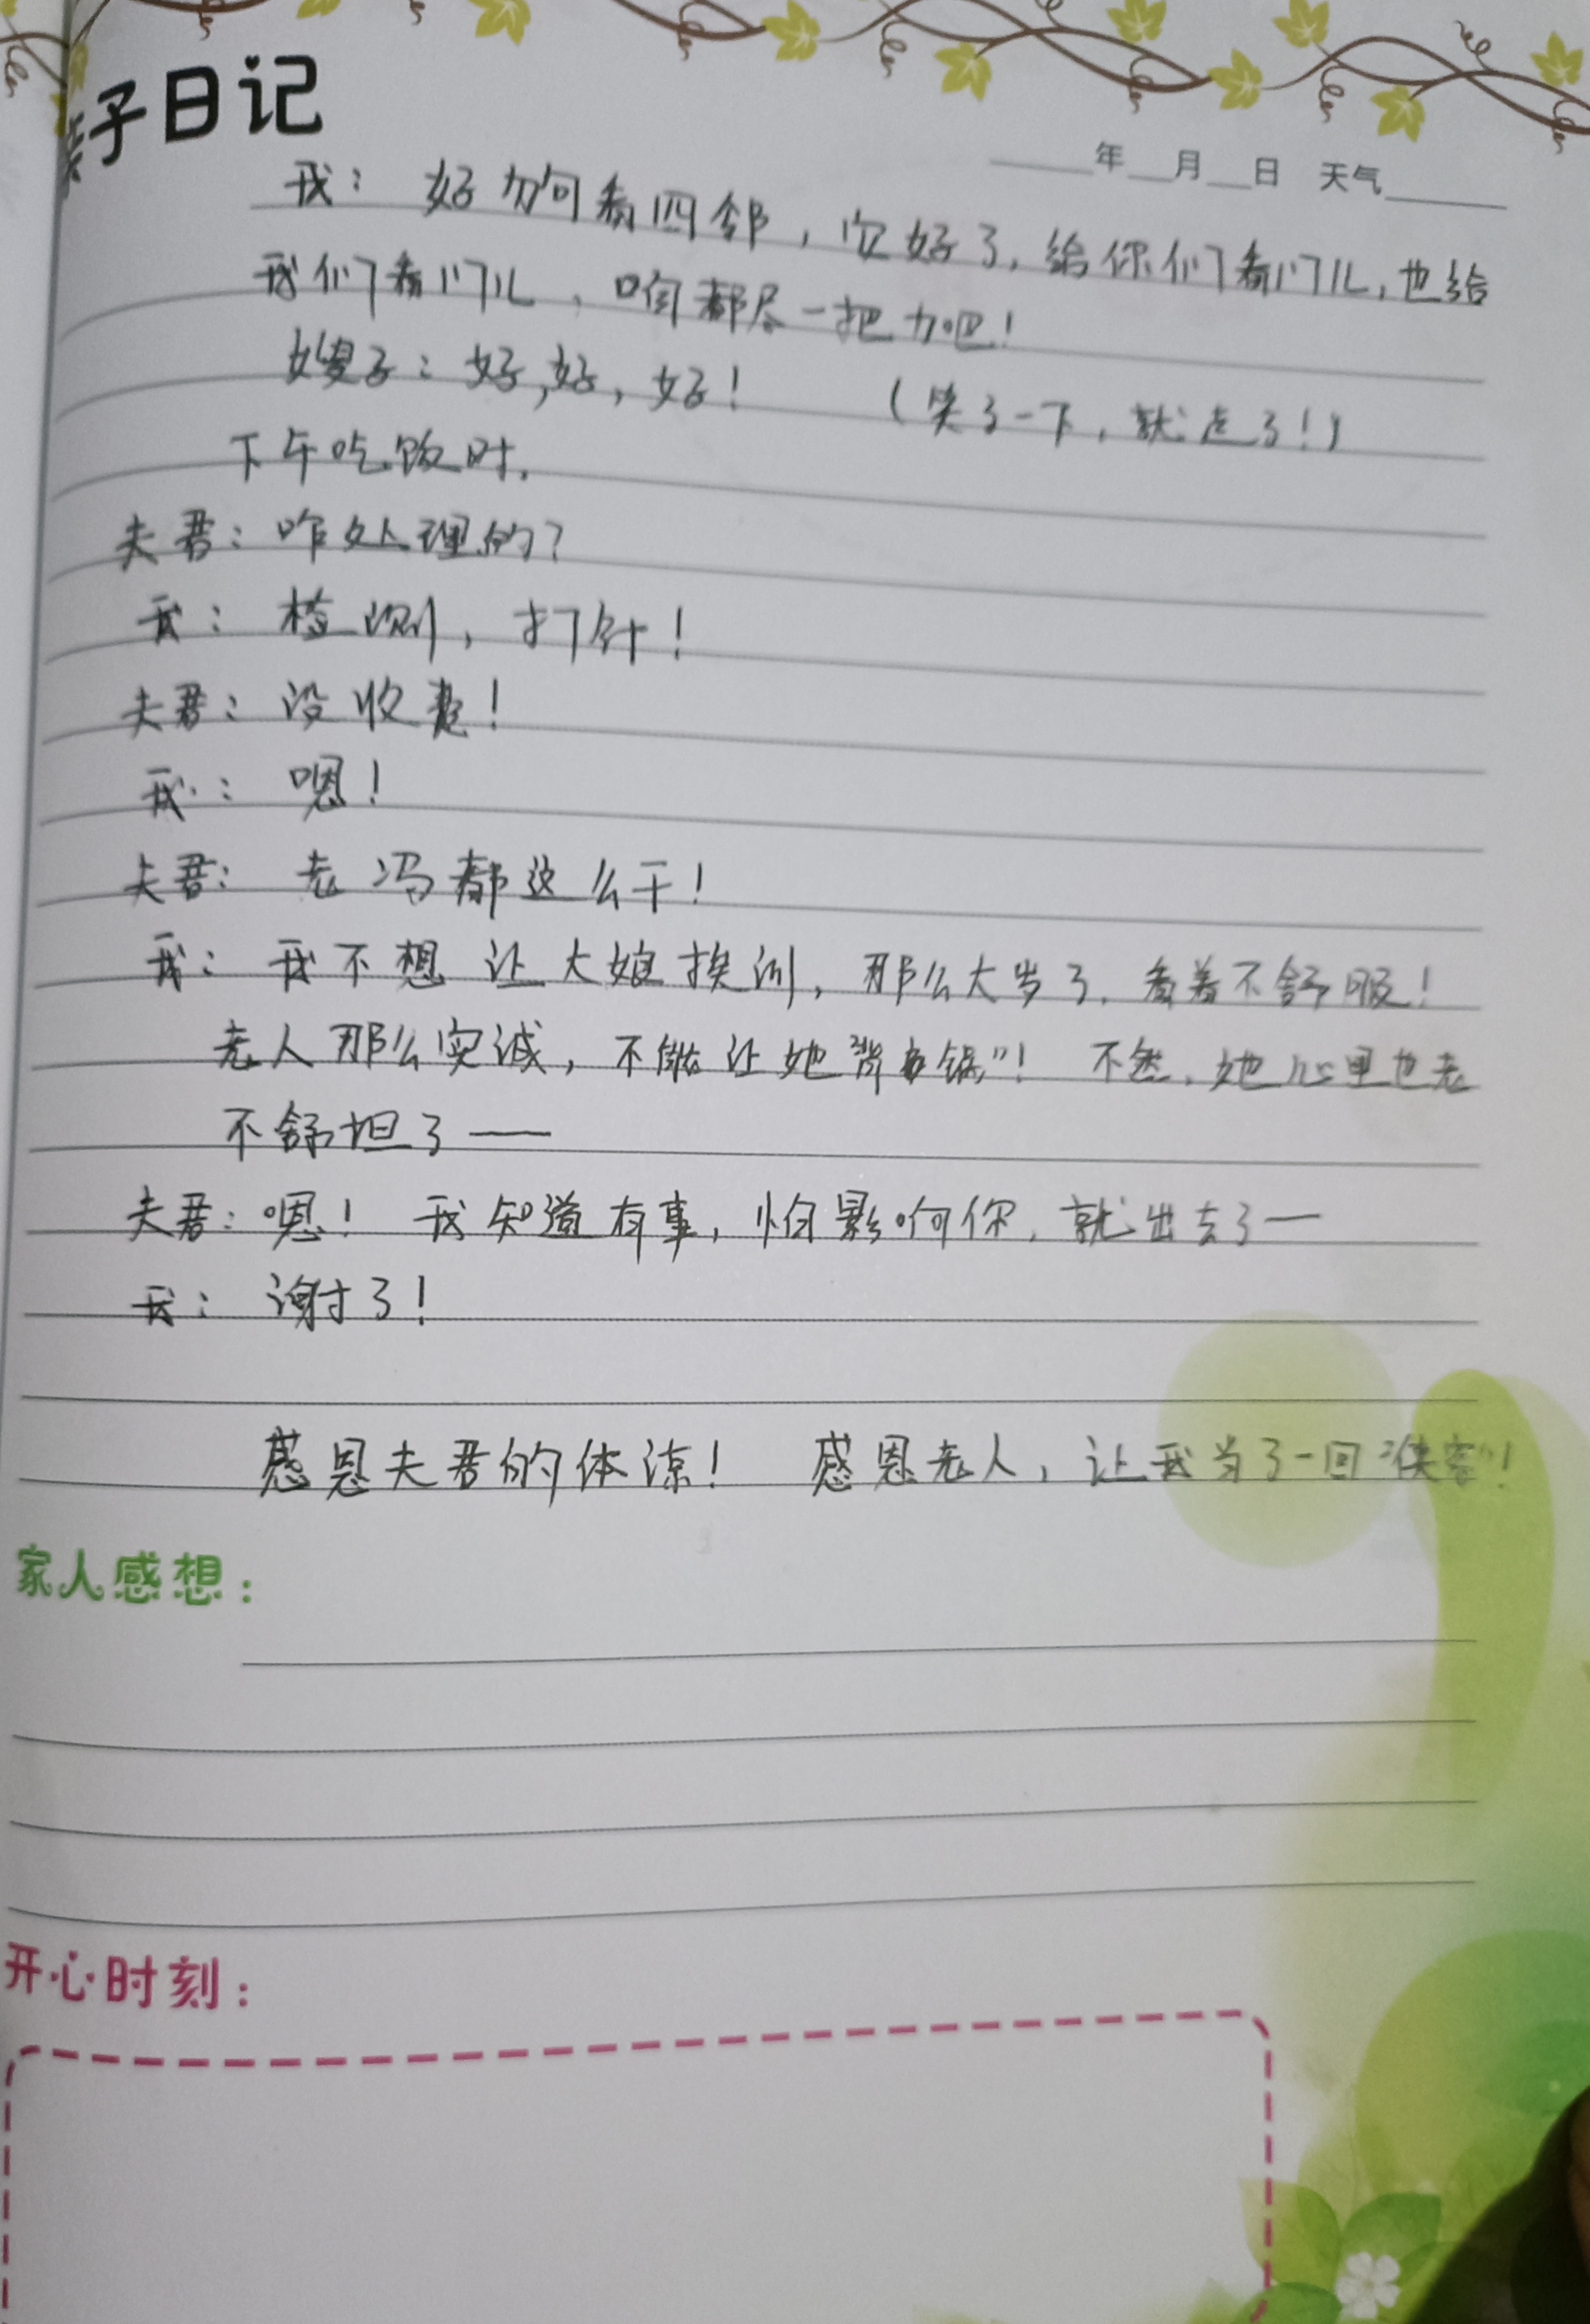 亲子日记
年 月 日 天气
我: 好狗看四邻,它好了,给你们看门儿,也给
我们看门儿,咱都尽一把力吧!
嫂子: 好,好,好! (笑了一下,就走了!)
下午吃饭时.
夫君: 咋处理的?
我: 检测,打针!
夫君: 没收费!
我: 嗯!
夫君: 老冯都这么干!
我: 我不想让大娘挨训,那么大岁了,看着不舒服!
老人那么实诚,不能让她"背黑锅"! 不然,她心里也老
不舒坦了——
夫君: 嗯! 我知道有事,怕影响你,就出去了—
我: 谢了!
感恩夫君的体谅! 感恩老人,让我当了一回"侠客"!
家人感想:
开心时刻: